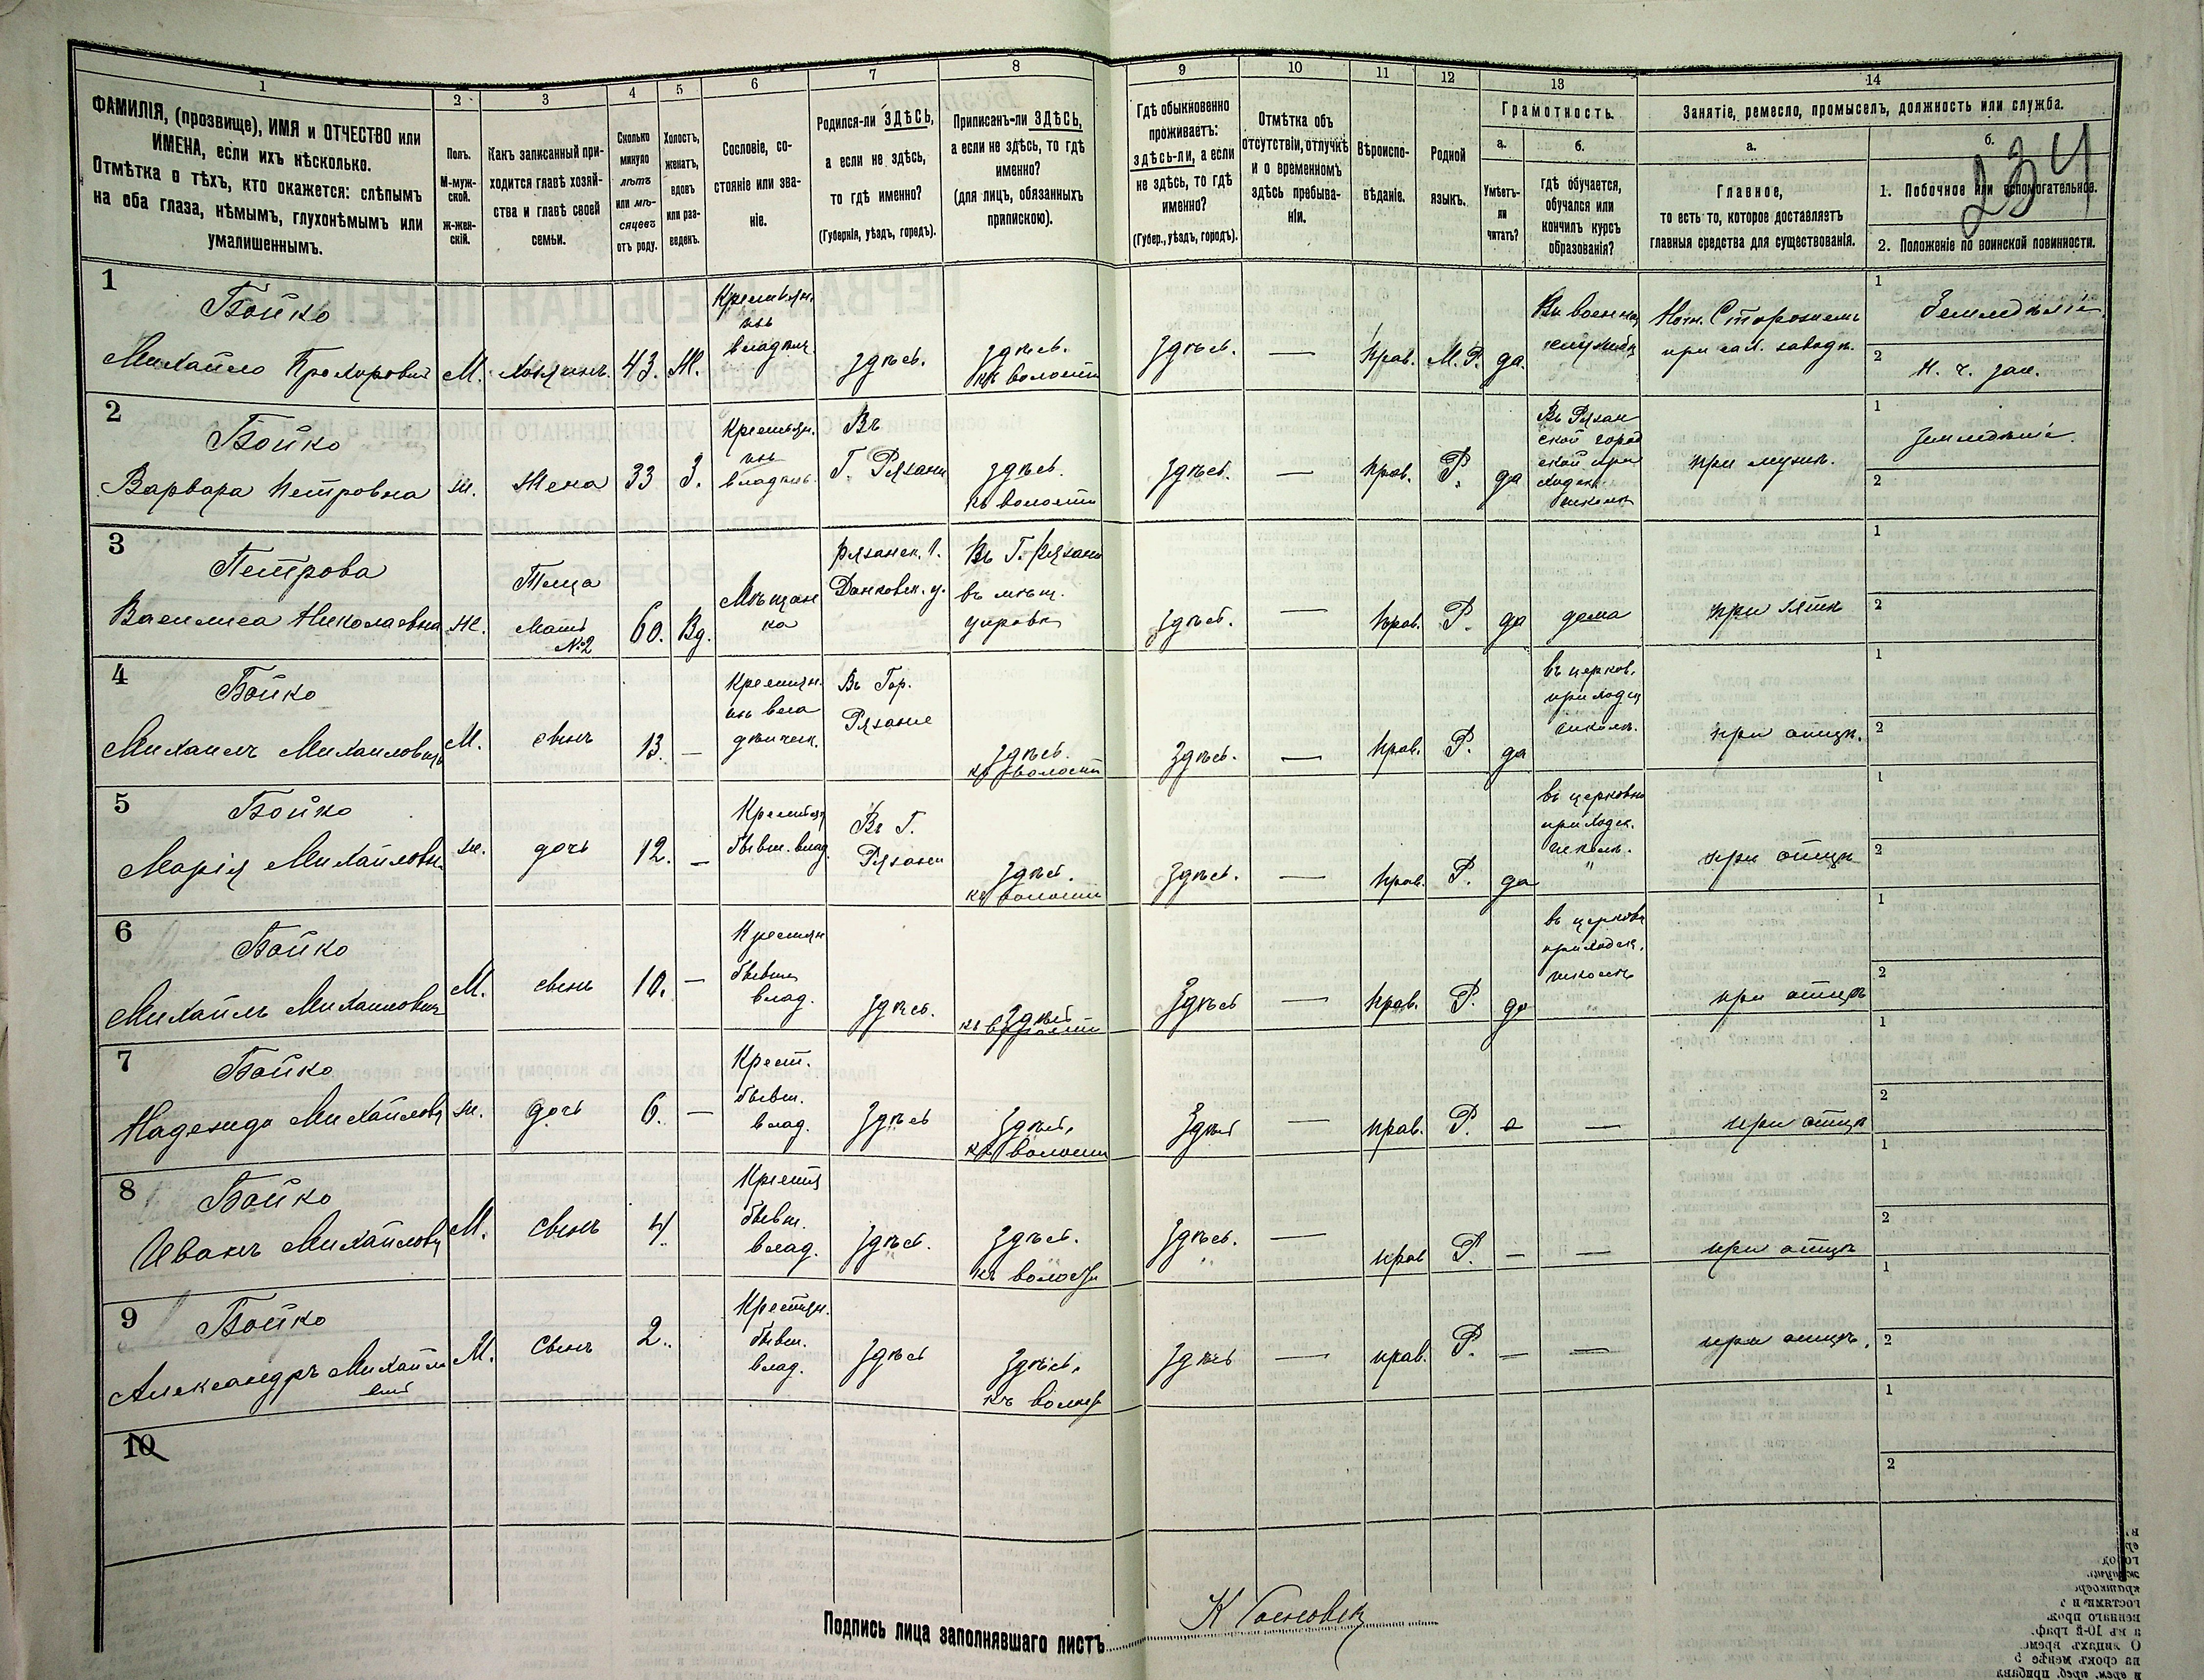 1 2 3 4 5 6 7 8 9 10 11 12 13 14
ФАМИЛІЯ, (прозвище), ИМЯ и ОТЧЕСТВО или
ИМЕНА, если ихъ нѣсколько.
Отмѣтка о тѣхъ, кто окажется: слѣпымъ
на оба глаза, нѣмымъ, глухонѣмымъ или
умалишеннымъ.
Полъ.
М-муж-
ской.
Ж-жен-
скій.
Какъ записанный при-
ходится главѣ хозяй-
ства и главѣ своей
семьи.
Сколько
минуло
лѣтъ
или мѣ-
сяцевъ
отъ роду.
Холостъ,
женатъ,
вдовъ
или раз-
веденъ.
Сословіе, со-
стояніе или зва-
ніе.
Родился-ли ЗДѢСЬ,
а если не здѣсь,
то гдѣ именно?
(Губернія, уѣздъ, городъ).
Приписанъ-ли ЗДѢСЬ,
а если не здѣсь, то гдѣ
именно?
(для лицъ, обязанныхъ
припискою).
Гдѣ обыкновенно
проживаетъ:
здѣсь-ли, а если
не здѣсь, то гдѣ
именно?
(Губер., уѣздъ, городъ).
Отмѣтка объ
отсутствіи, отлучкѣ
и о временномъ
здѣсь пребыва-
ніи.
Вѣроиспо-
вѣданіе.
Родной
языкъ.
Грамотность.
а.
Умѣетъ-
ли
читать?
б.
гдѣ обучается,
обучался или
кончилъ курсъ
образованія?
Занятіе, ремесло, промыселъ, должность или служба.
а.
Главное,
то есть то, которое доставляетъ
главныя средства для существованія.
б.
1. Побочное или вспомогательное.
2. Положеніе по воинской повинности.
234
1
Бойко
Михайло Прохорович
М. Хозяинъ. 43. Ж.
Крестьян.
изъ
владѣл.
здѣсь.
здѣсь.
къ волости
здѣсь.
—
прав. М.Р. да.
Въ военной
службѣ
Ночн. Сторожемъ
при сах. заводѣ.
1 Земледѣліе.
2 Н. ч. зап.
2
Бойко
Варвара Петровна
ж. Жена 33 З.
Крестьян.
изъ
владѣль.
Въ
Г. Рязани
здѣсь.
къ волости
здѣсь.
—
прав. Р. да
Въ Рязан
ской город
ской при
ходск.
школѣ
при мужѣ.
1 Земледѣліе.
2
3
Петрова
Василиса Николаевна
Ж.
Теща
Мать
№2
60. Вд.
Мѣщан
ка
Рязанск. г.
Данковск. у.
Въ Г. Рязани
въ мѣщ.
управѣ
здѣсь.
—
прав. Р. да дома
при зятѣ
1
2
4
Бойко
Михаилъ Михаиловичъ
М. сынъ 13. —
Крестьян.
изъ вла
дѣльческ.
Въ Гор.
Рязане
здѣсь.
къ волости
здѣсь.
—
прав. Р. да
въ церков.
приходск
школѣ.
при отцѣ.
1
2
5
Бойко
Марія Михайловн
ж. дочь 12. —
Крестьян
бывш. влад.
Въ Г.
Рязани
здѣсь.
къ волости
здѣсь.
—
прав. Р. да
въ церковно
приходск.
школѣ.
при отцѣ
1
2
6
Бойко
Михаилъ Михаилович
М. сынъ 10. —
Крестьян
бывш
влад.
здѣсь.
здѣсь
къ волости
здѣсь
—
прав. Р. да
въ церковн
приходск.
школѣ
при отцѣ
1
2
7
Бойко
Надежда Михайловн
ж. дочь 6. —
Крест.
бывш.
влад.
здѣсь
здѣсь,
къ волости
здѣсь
—
прав. Р.
—
при отцѣ
1
2
8
Бойко
Иванъ Михайлович
М. сынъ 4
Крестьян
бывш.
влад.
здѣсь.
здѣсь.
къ волости
здѣсь.
—
прав Р. — —
при отцѣ
1
2
9
Бойко
Александръ Михайло
вич
М. сынъ 2.
Крестьян.
бывш.
влад.
здѣсь
здѣсь,
къ волост
здѣсь
—
прав. Р. — —
при отцѣ.
1
2
10
1
2
Подпись лица заполнявшаго листъ